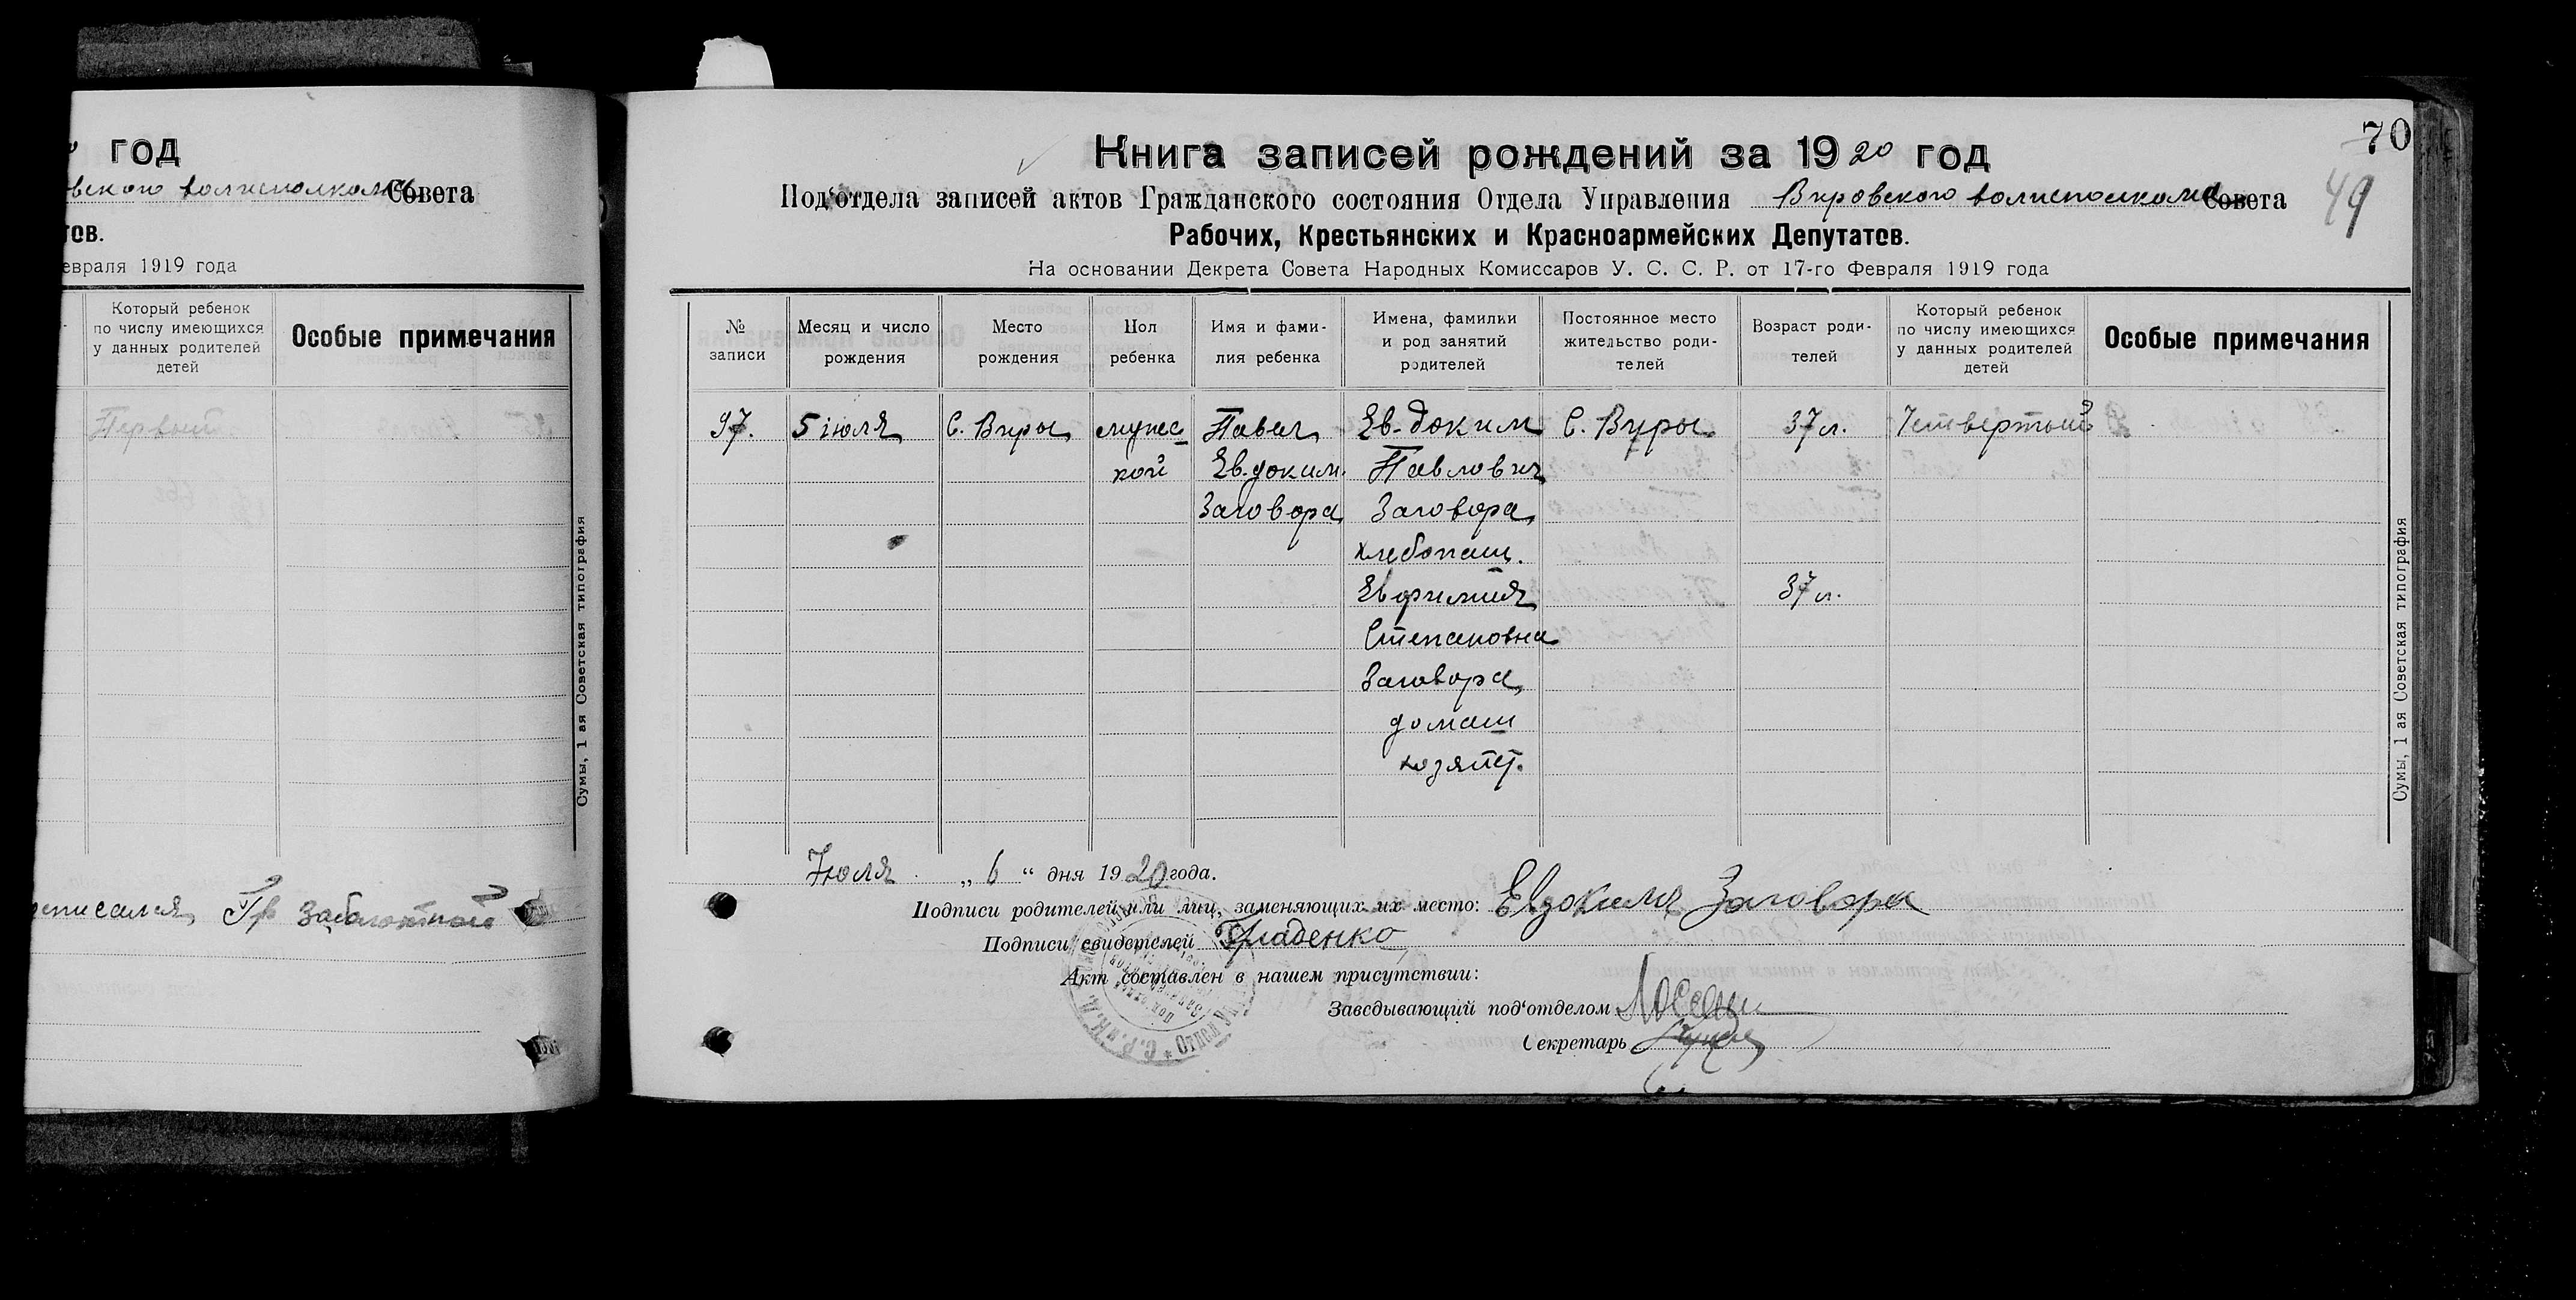 год
вского волисполкома Совета
тов.
евраля 1919 года
Который ребенок
по числу имеющихся
у данных родителей
детей
Особые примечания
Первый
Сумы, 1 ая Советская типография
Гр Заболотный
70
49
Книга записей рождений за 1920 год
Под‘отдела записей актов Гражданского состояния Отдела Управления Вировского волисполкома Совета
Рабочих, Крестьянских и Красноармейских Депутатов.
На основании Декрета Совета Народных Комиссаров У. С. С. Р. от 17-го Февраля 1919 года
№
записи
Месяц и число
рождения
Место
рождения
Пол
ребенка
Имя и фами-
лия ребенка
Имена, фамилии
и род занятий
родителей
Постоянное место
жительство роди-
телей
Возраст роди-
телей
Который ребенок
по числу имеющихся
у данных родителей
детей
Особые примечания
97. 5 июля С. Виры мужес Павел Ев-доким С. Виры. 37 л. Четвертый
кой Ев.доким. Павлович
Заговора Заговора
хлебопаш.
Евфимия 37 л.
Степановна
Заговора
домаш
хозяйст.
Сумы, 1 ая Советская типография
Июля „6“ дня 1920 года.
Подписи родителей или лиц, заменяющих их место: Евдоким Заговора
Подписи свидетелей Гладенко
Акт составлен в нашем присутствии:
Заведывающий под‘отделом
Секретарь